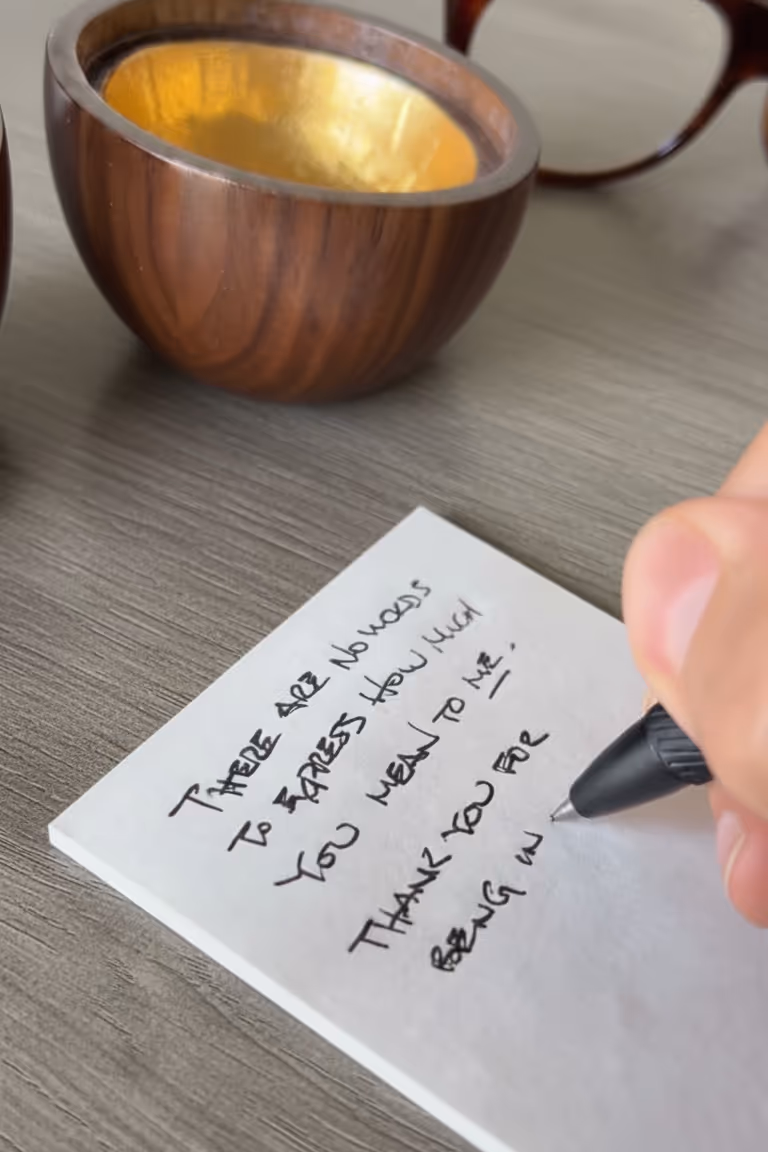 THERE ARE NO WORDS
TO EXPRESS HOW MUCH
YOU MEAN TO ME.
THANK YOU FOR
BEING IN